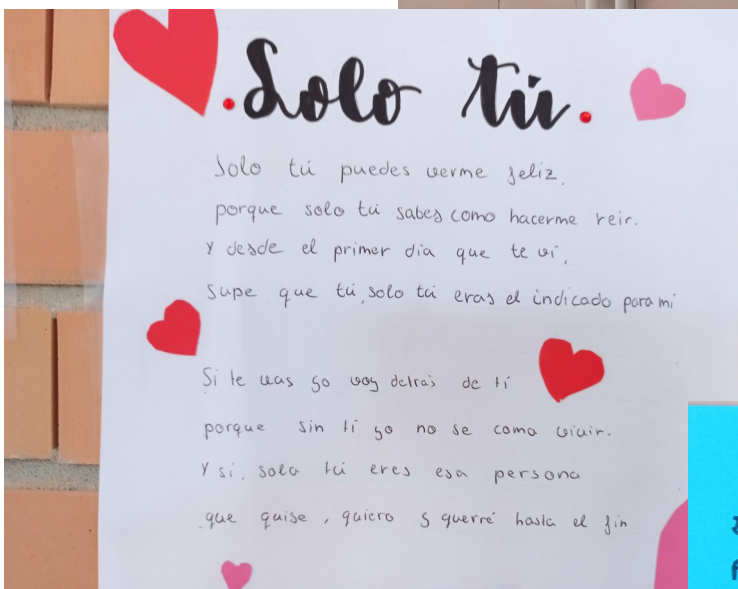 .Solo tú.
Solo tú puedes verme feliz,
porque solo tú sabes como hacerme reir.
Y desde el primer día que te ví,
supe que tú, solo tú eras el indicado para mi
Si te vas yo voy detrás de tí
porque sin tí yo no se como vivir.
Y si, solo tú eres esa persona
que quise, quiero y querré hasta el fin